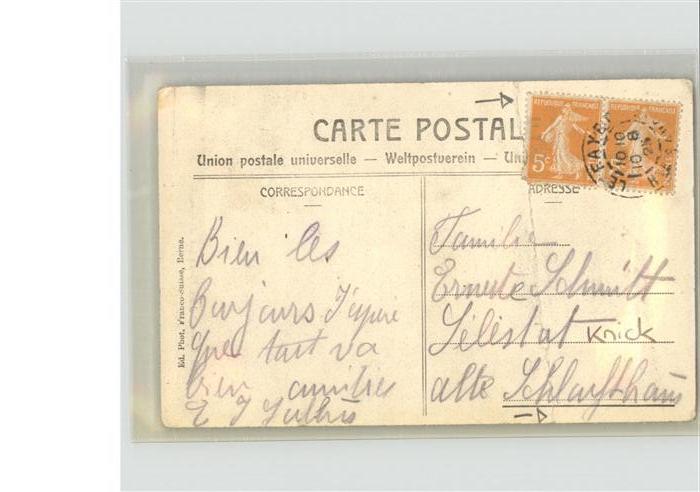 CARTE POSTAL
Union postale universelle — Weltpostverein — Un
CORRESPONDANCE
ADRESSE
REPUBLIQUE FRANÇAISE
5c
REPUBLIQUE FRANÇAISE
Ed. Phot. Franco-Suisse, Berne.
Bien les
Bonjours J'espere
que tout va
bien amities
E J
Familie
Erneste Schmitt
Sélestat Knick
alte Schlachthaus